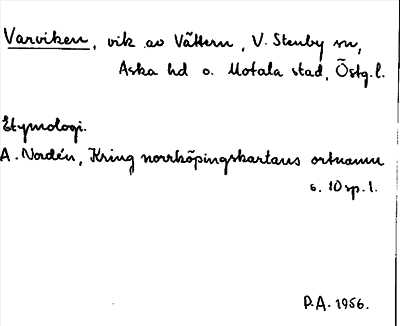 Varviken, vik av Vättern, V. Stenby sn,
Aska hd o. Motala stad, Östg. l.
Etymologi.
A. Nordén, Kring norrköpingskartans ortnamn
s. 10 sp. 1.
P.A. 1956.